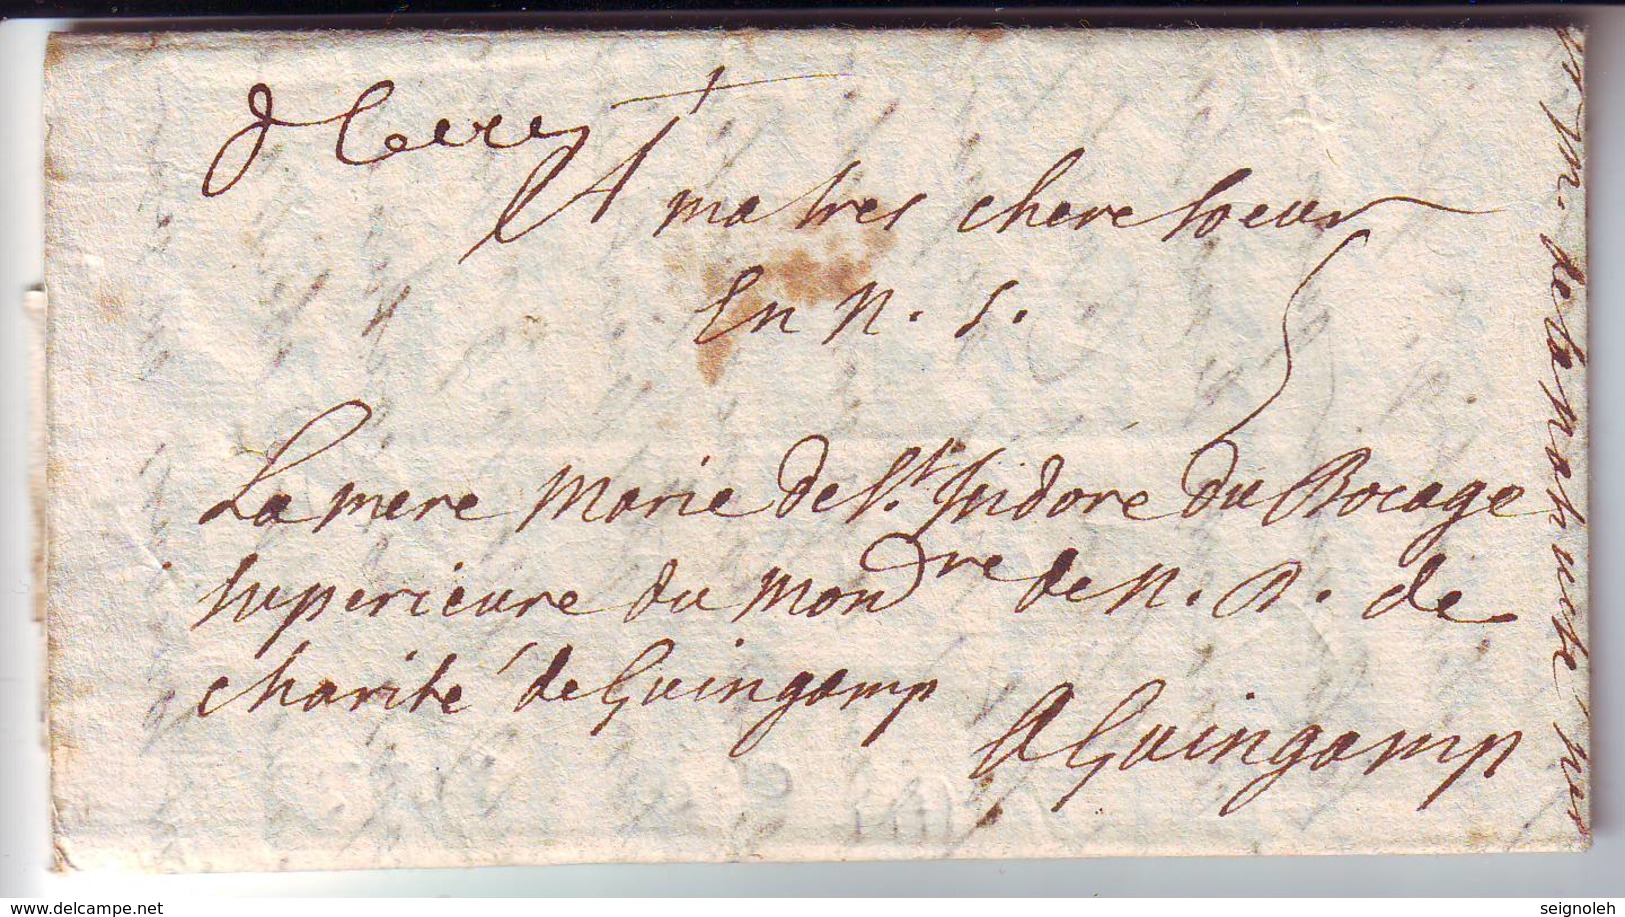 A ma tres chere soeur
en n. s.
La mere marie de st. Isidore du Bocage
superieure du monre de n. D. de
charité de Guingamp
A Guingamp
www.delcampe.net
seignoleh